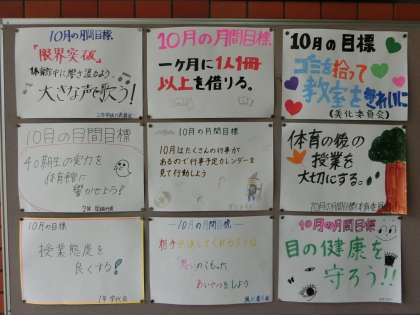 10月の月間目標
「限界突破」
体育館中に響き渡るよう
大きな声で歌う!
10月の月間目標
一ヶ月に1人1冊
以上を借りろ。
10月の目標
ゴミを拾って
教室をきれいに
(美化委員会)
10月の月間目標
40期生の実力を
体育館に
響かせよう!
10月の月間目標
10月はたくさんの行事が
あるので行事予定カレンダーを
見て行動しよう
体育の鏡の
授業を
大切にする。
10月の月間目標
10月の月間目標
授業態度を
良くする!
1年 学代会
10月の月間目標
思いのこもった
あいさつをしよう
10月の月間目標
目の健康を
守ろう!!